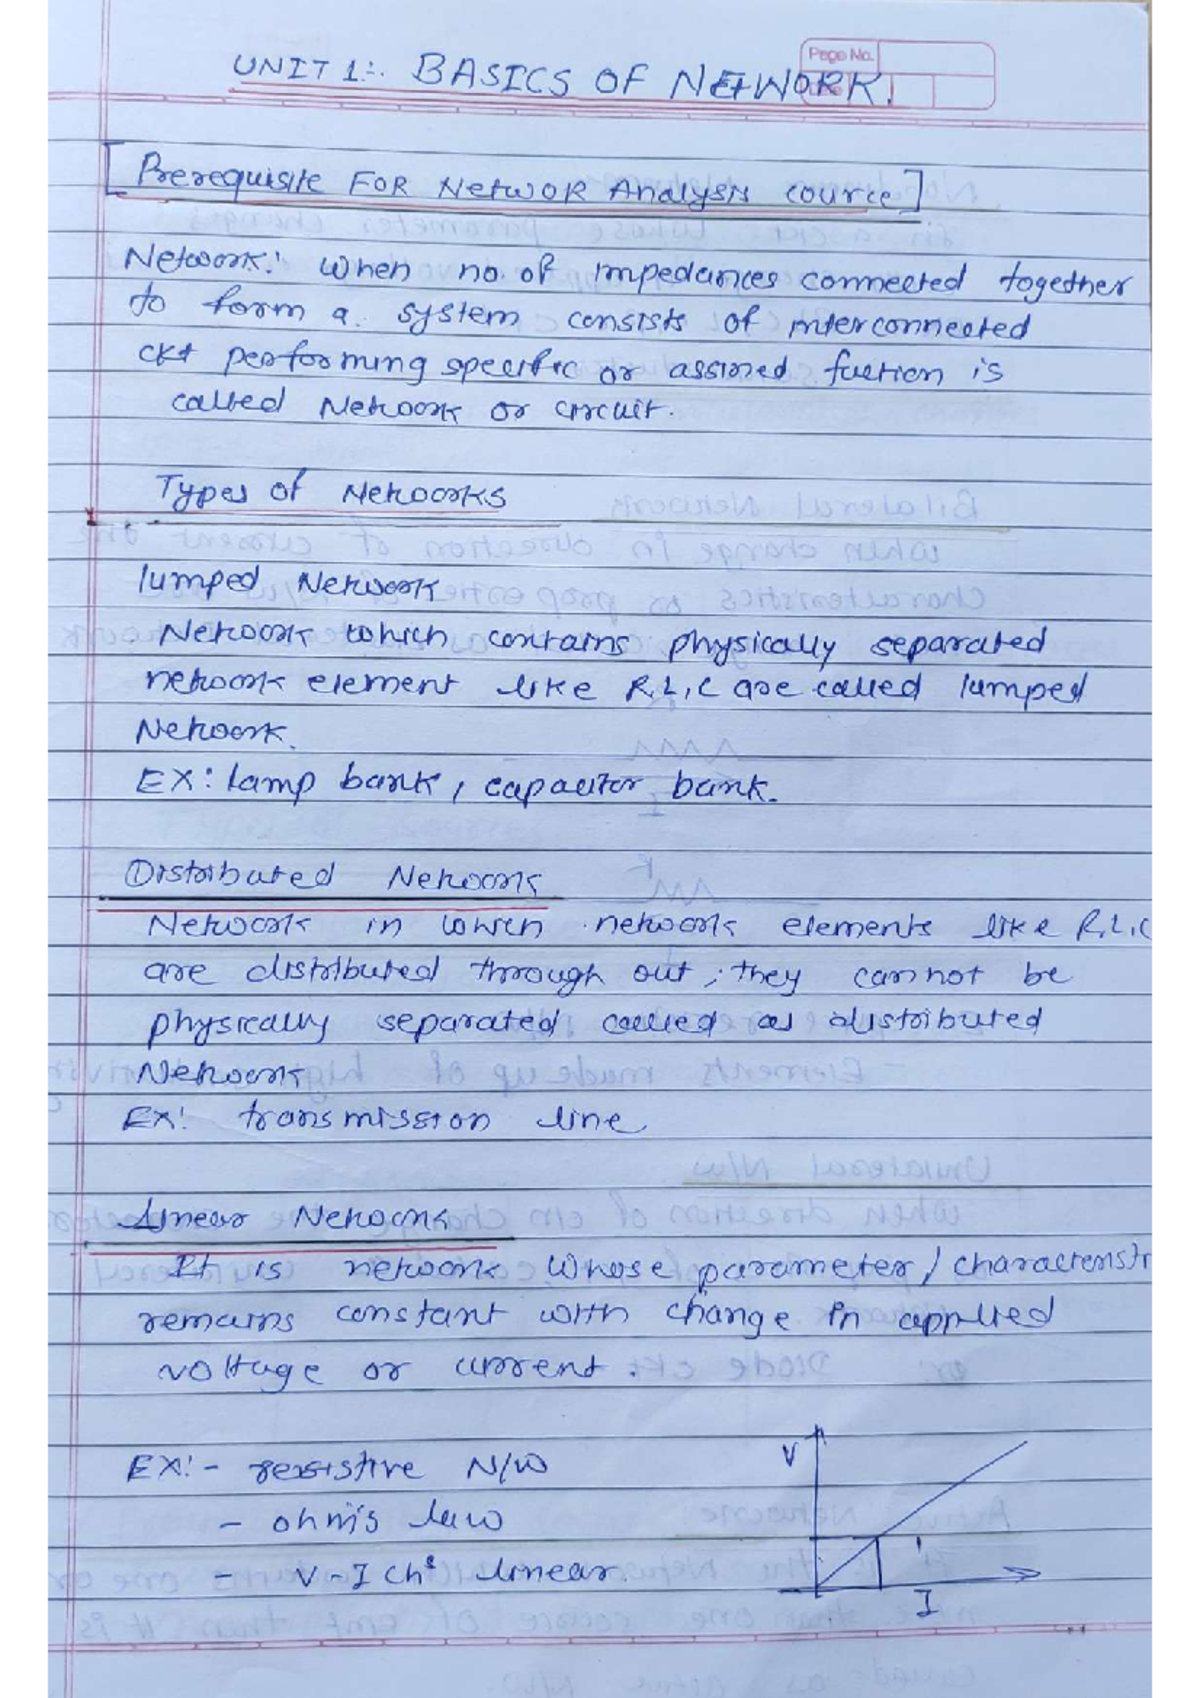 Page No.
UNIT 1:- BASICS OF NETWORK.
[Prerequisite FOR NetwOR Analysis cource]
Network: When no. of impedances connected together
to form a system consists of interconnected
ckt performing specific or assined fuction is
called Network or circuit.
Types of Networks
lumped Network
Network which contains physically separated
network element like R,L,C are called lumped
Network.
EX: lamp bank, capacitor bank.
Distributed Network
Network in which network elements like R,L,C
are distributed through out, they cannot be
physically separated called as distributed
Network
EX: transmission line
Linear Network
It is network whose parameter/characterist
remains constant with change in applied
voltage or current.
EX:- resistive N/W
- ohm's law
- V-I chs linear.
V
I